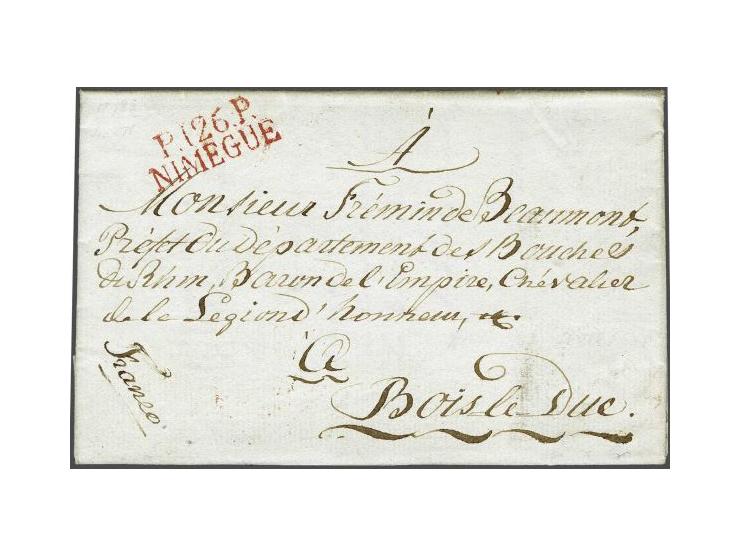 P.126.P.
NIMEGUE
A
Monsieur Frémin de Beaumont,
Préfet du Département des Bouches
du Rhin, Baron de l'Empire, Chévalier
de la Légion d'honneur, &c.
a
Bois le Duc.
Franco.